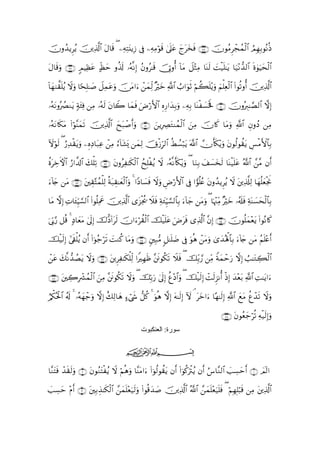 وَمُجْرِمُوهُمُ ٱلْمُجْرِمُونَ ﴿٧٨﴾ فَخَرَجَ عَلَىٰ قَوْمِهِۦ فِى زِينَتِهِۦ ۖ قَالَ ٱلَّذِينَ يُرِيدُونَ
ٱلْحَيَوٰةَ ٱلدُّنْيَا يَـٰلَيْتَ لَنَا مِثْلَ مَآ أُوتِىَ قَـٰرُونُ إِنَّهُۥ لَذُو حَظٍّ عَظِيمٍ ﴿٧٩﴾ وَقَالَ
ٱلَّذِينَ أُوتُوا۟ ٱلْعِلْمَ وَيْلَكُمْ ثَوَابُ ٱللَّهِ خَيْرٌ لِّمَنْ ءَامَنَ وَعَمِلَ صَـٰلِحًا وَلَا يُلَقَّىٰهَآ
إِلَّا ٱلصَّـٰبِرُونَ ﴿٨٠﴾ فَخَسَفْنَا بِهِۦ وَبِدَارِهِ ٱلْأَرْضَ فَمَا كَانَ لَهُۥ مِن فِئَةٍ يَنصُرُونَهُۥ
مِن دُونِ ٱللَّهِ وَمَا كَانَ مِنَ ٱلْمُنتَصِرِينَ ﴿٨١﴾ وَأَصْبَحَ ٱلَّذِينَ تَمَنَّوْا۟ مَكَانَهُۥ
بِٱلْأَمْسِ يَقُولُونَ وَيْكَأَنَّ ٱللَّهَ يَبْسُطُ ٱلرِّزْقَ لِمَن يَشَآءُ مِنْ عِبَادِهِۦ وَيَقْدِرُ ۖ لَوْلَآ
أَن مَّنَّ ٱللَّهُ عَلَيْنَا لَخَسَفَ بِنَا ۖ وَيْكَأَنَّهُۥ لَا يُفْلِحُ ٱلْكَـٰفِرُونَ ﴿٨٢﴾ تِلْكَ ٱلدَّارُ ٱلْـَٔاخِرَةُ
نَجْعَلُهَا لِلَّذِينَ لَا يُرِيدُونَ عُلُوًّا فِى ٱلْأَرْضِ وَلَا فَسَادًا ۚ وَٱلْعَـٰقِبَةُ لِلْمُتَّقِينَ ﴿٨٣﴾ مَن جَآءَ
بِٱلْحَسَنَةِ فَلَهُۥ خَيْرٌ مِّنْهَا ۖ وَمَن جَآءَ بِٱلسَّيِّئَةِ فَلَا يُجْزَى ٱلَّذِينَ عَمِلُوا۟ ٱلسَّيِّـَٔاتِ إِلَّا مَا
كَانُوا۟ يَعْمَلُونَ ﴿٨٤﴾ إِنَّ ٱلَّذِى فَرَضَ عَلَيْكَ ٱلْقُرْءَانَ لَرَآدُّكَ إِلَىٰ مَعَادٍ ۚ قُل رَّبِّىٓ
أَعْلَمُ مَن جَآءَ بِٱلْهُدَىٰ وَمَنْ هُوَ فِى ضَلَـٰلٍ مُّبِينٍ ﴿٨٥﴾ وَمَا كُنتَ تَرْجُوٓا۟ أَن يُلْقَىٰٓ إِلَيْكَ
ٱلْكِتَـٰبُ إِلَّا رَحْمَةً مِّن رَّبِّكَ ۖ فَلَا تَكُونَنَّ ظَهِيرًا لِّلْكَـٰفِرِينَ ﴿٨٦﴾ وَلَا يَصُدُّنَّكَ عَنْ
ءَايَـٰتِ ٱللَّهِ بَعْدَ إِذْ أُنزِلَتْ إِلَيْكَ ۖ وَٱدْعُ إِلَىٰ رَبِّكَ ۖ وَلَا تَكُونَنَّ مِنَ ٱلْمُشْرِكِينَ ﴿٨٧﴾
وَلَا تَدْعُ مَعَ ٱللَّهِ إِلَـٰهًا ءَاخَرَ ۘ لَآ إِلَـٰهَ إِلَّا هُوَ ۚ كُلُّ شَىْءٍ هَالِكٌ إِلَّا وَجْهَهُۥ ۚ لَهُ ٱلْحُكْمُ
وَإِلَيْهِ تُرْجَعُونَ ﴿٨٨﴾
سورة: العنكبوت
بِسْمِ ٱللَّهِ ٱلرَّحْمَـٰنِ ٱلرَّحِيمِ
الٓمٓ ﴿١﴾ أَحَسِبَ ٱلنَّاسُ أَن يُتْرَكُوٓا۟ أَن يَقُولُوٓا۟ ءَامَنَّا وَهُمْ لَا يُفْتَنُونَ ﴿٢﴾ وَلَقَدْ فَتَنَّا
ٱلَّذِينَ مِن قَبْلِهِمْ ۖ فَلَيَعْلَمَنَّ ٱللَّهُ ٱلَّذِينَ صَدَقُوا۟ وَلَيَعْلَمَنَّ ٱلْكَـٰذِبِينَ ﴿٣﴾ أَمْ حَسِبَ